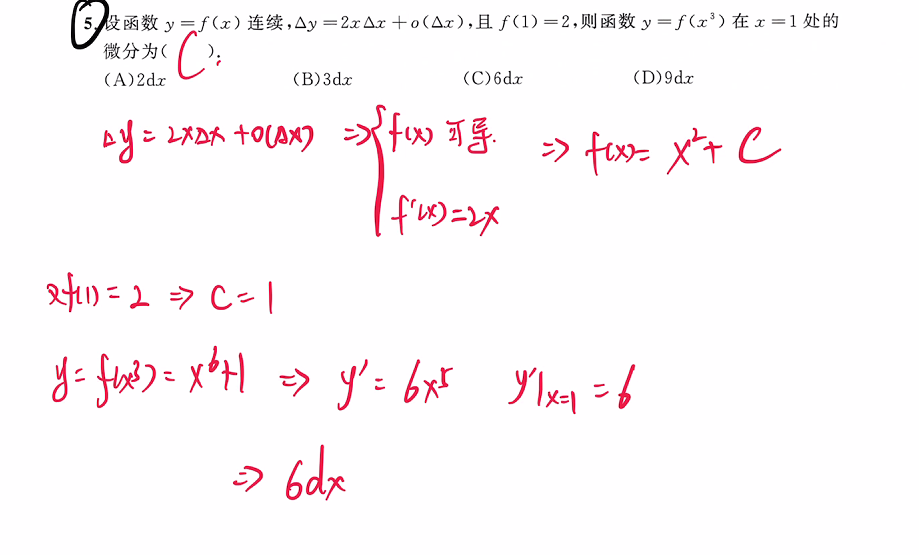 5. 设函数 y=f(x) 连续,Δy=2xΔx+o(Δx),且 f(1)=2,则函数 y=f(x³) 在 x=1 处的
微分为( C ).
(A)2dx (B)3dx (C)6dx (D)9dx
Δy = 2xΔx + o(Δx) ⇒ { f(x) 可导. ⇒ f(x) = x² + C
f'(x) = 2x
又f(1) = 2 ⇒ C = 1
y = f(x³) = x⁶+1 ⇒ y' = 6x⁵ y'|x=1 = 6
⇒ 6dx